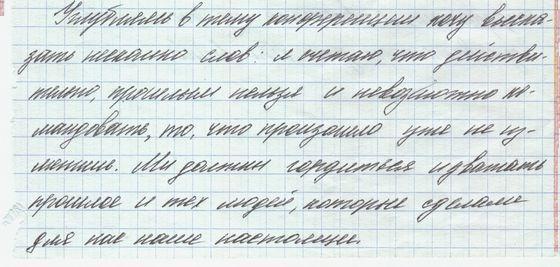 Углубляясь в тему конференции хочу выска
зать несколько слов: я считаю, что действи-
тельно, прошлым нельзя и невозможно ко-
мандовать, то, что произошло уже не из-
менишь. Мы должны гордиться и уважать
прошлое и тех людей, которые сделали
для нас наше настоящее.